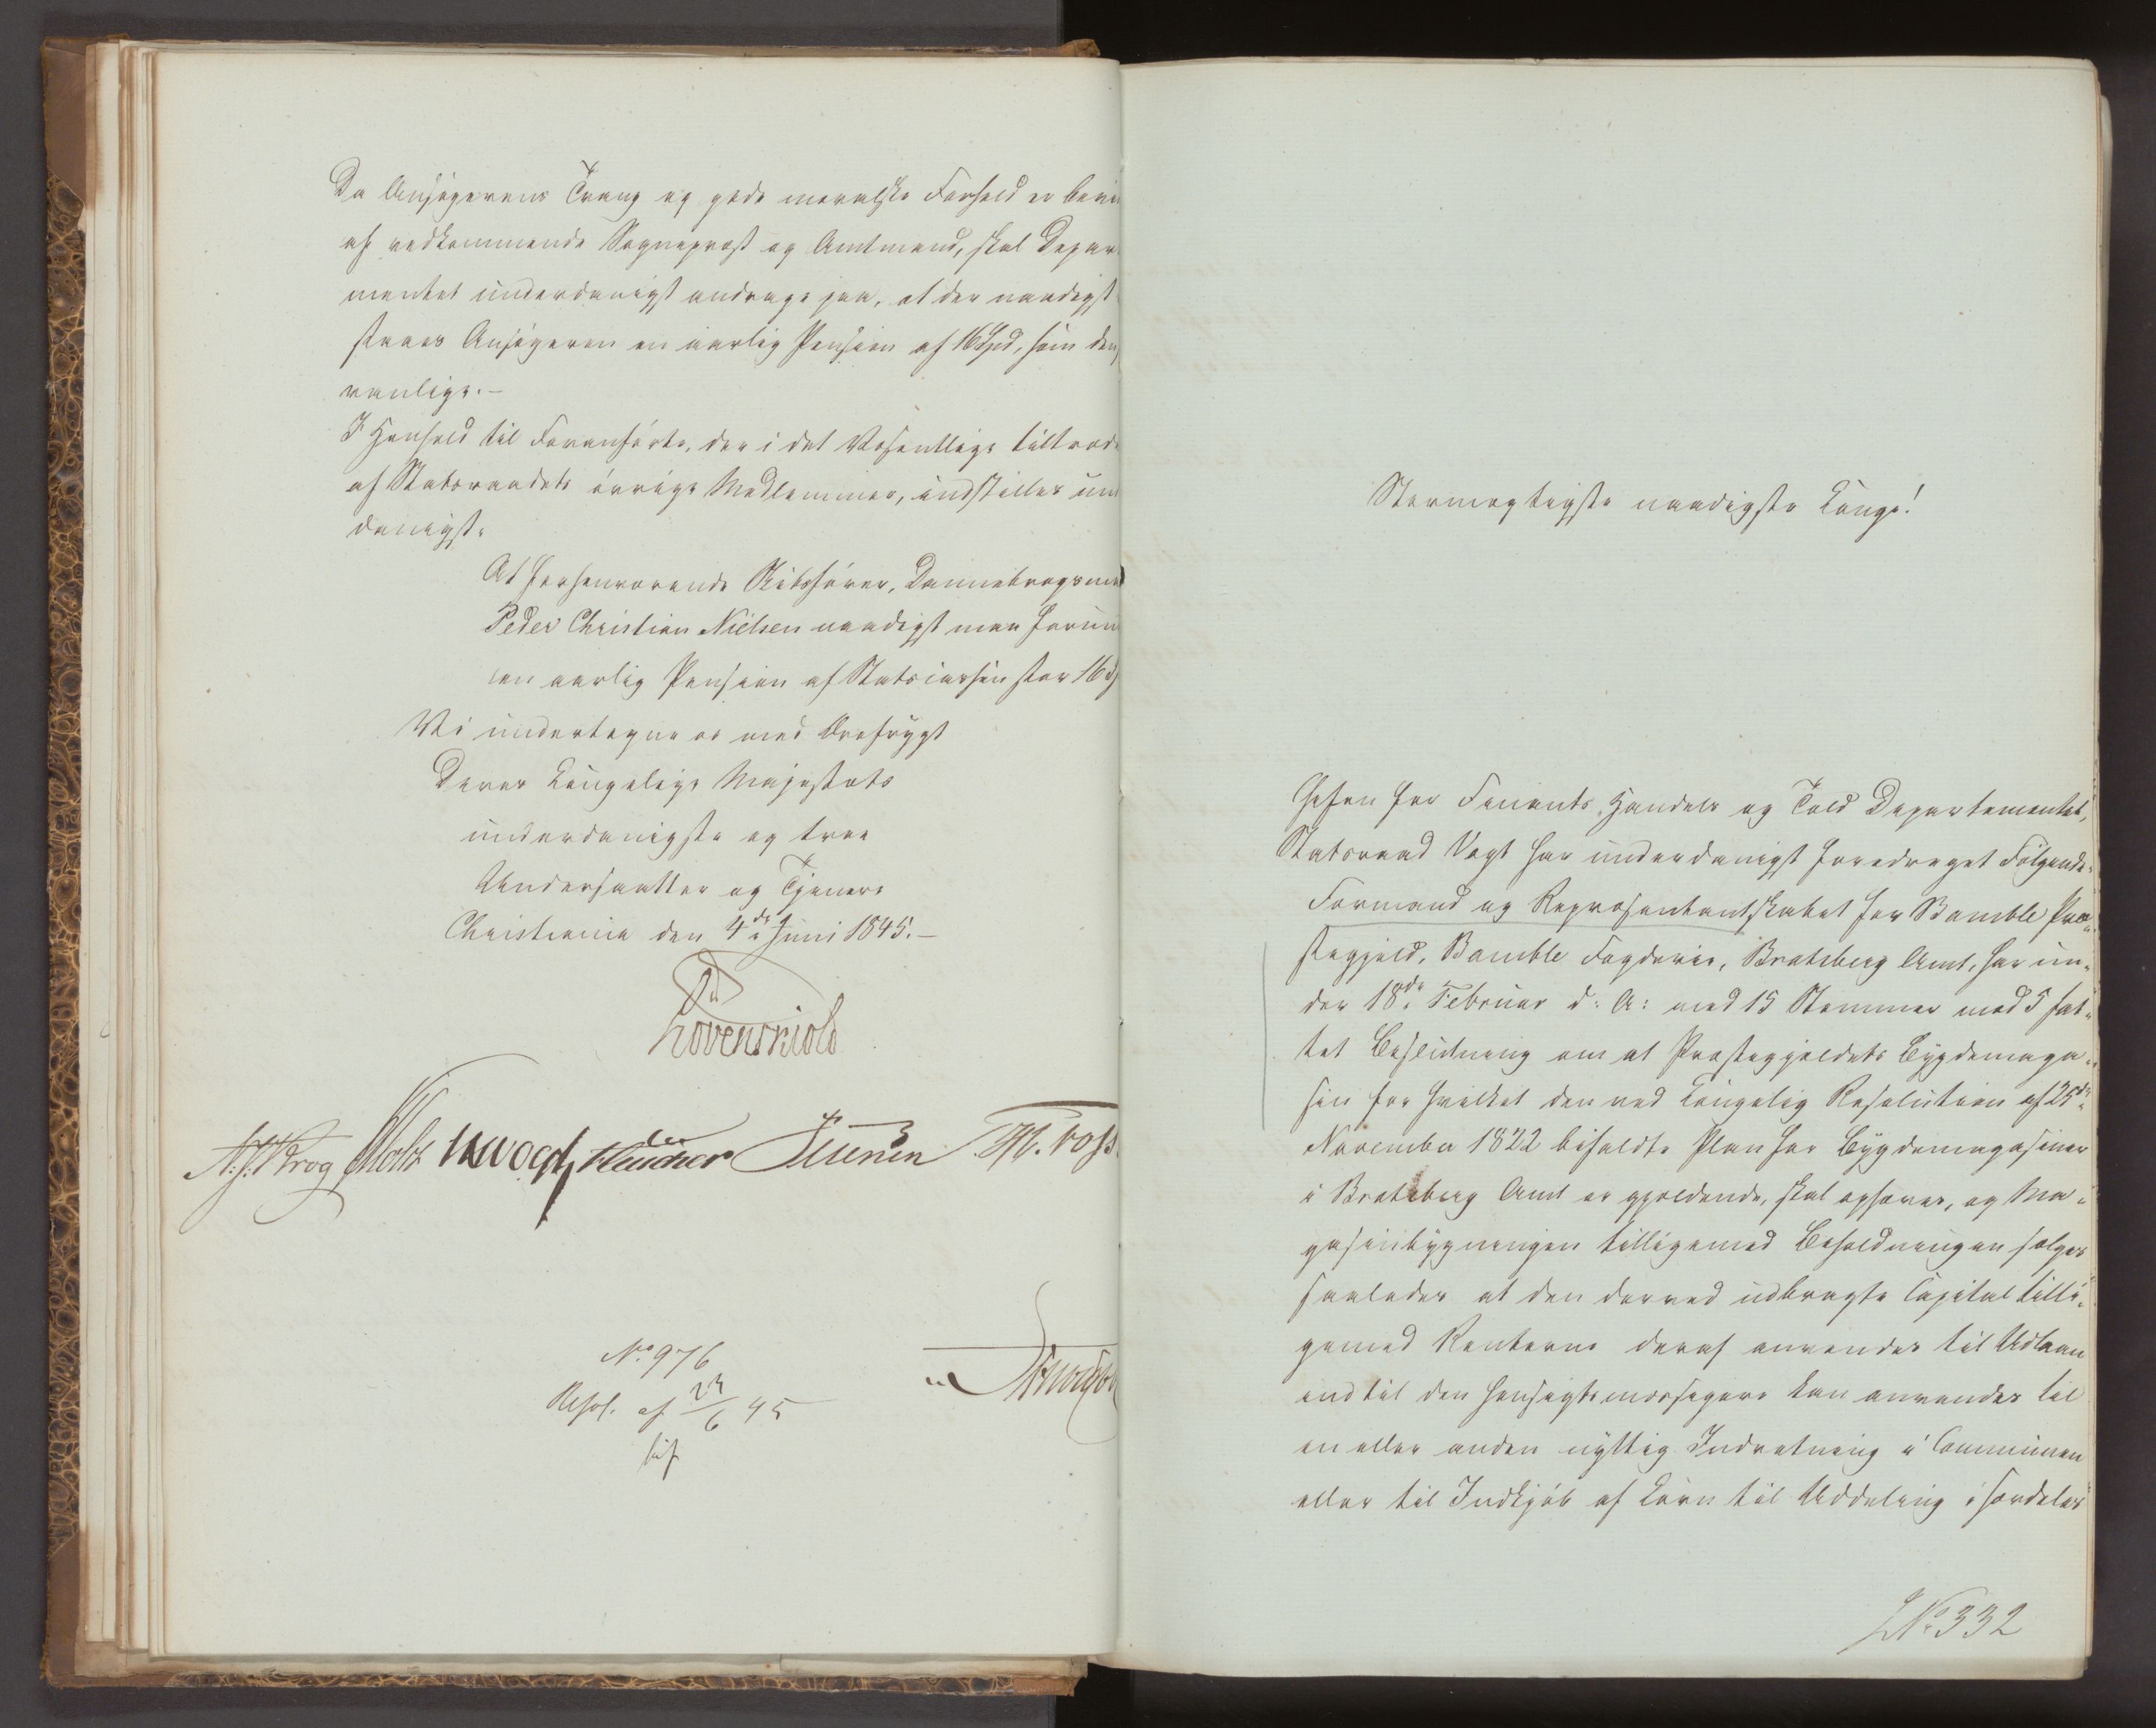 Da Ansøgerens Trang og gode moralske Forhold er bevi
af vedkommende Sogneprest og Amtmand, skal Depar
mentet underdanigst andrage paa, at der naadigst
staaes Ansøgeren en aarlig Pension af 16 Spd, som den
vanlige.-
I Henhold til Foranførte, der i det Væsentlige tiltræd
af Statsraadets øvrige Medlemmer, indstilles un
danigst:
At forhenværende Dannebrogsm
Peder Christian Nielsen naadigst maa forun
en aarlig Pension af Statscassen stor 16
Vi undertegne os med Ærefrygt
Deres Kongelige Majestæts
underdanigste og troe
Undersaatter og Tjenere
Christiania den 4de Juni 1845.-
Løvenskiold
Krog Motzfeldt Vogt Sibbern H. Foss
No 976
Resol. af 23/6 45
Stormægtigste naadigste Konge!
Chefen for Finants Handels og Told Departementet,
Statsraad Vogt har underdanigst foredraget Følgende:
Formand og Repræsentantskabet for Bamble Præ-
stegjeld, Bamble Fogderie, Bratsberg Amt, har un-
der 18de Februar d: A: med 15 Stemmer mod 5 fat-
tet Beslutning om at Præstegjeldets Bygdemaga-
sin for hvilket den ved Kongelig Resolution af 25de
November 1822 bifaldte Plan for Bygdemagasiner
i Bratsberg Amt er gjeldende, skal ophæves, og Ma-
gasinbygningen tilligemed Beholdningen sælges
saaledes at den derved udbragte Capital tilli-
gemed Renterne deraf anvendes til Udlaan
indtil den hensigtsmæssigere kan anvendes til
en eller anden nyttig Indretning i Communen
eller til Indkjøb af Korn til Uddeling i særdeles
No 332